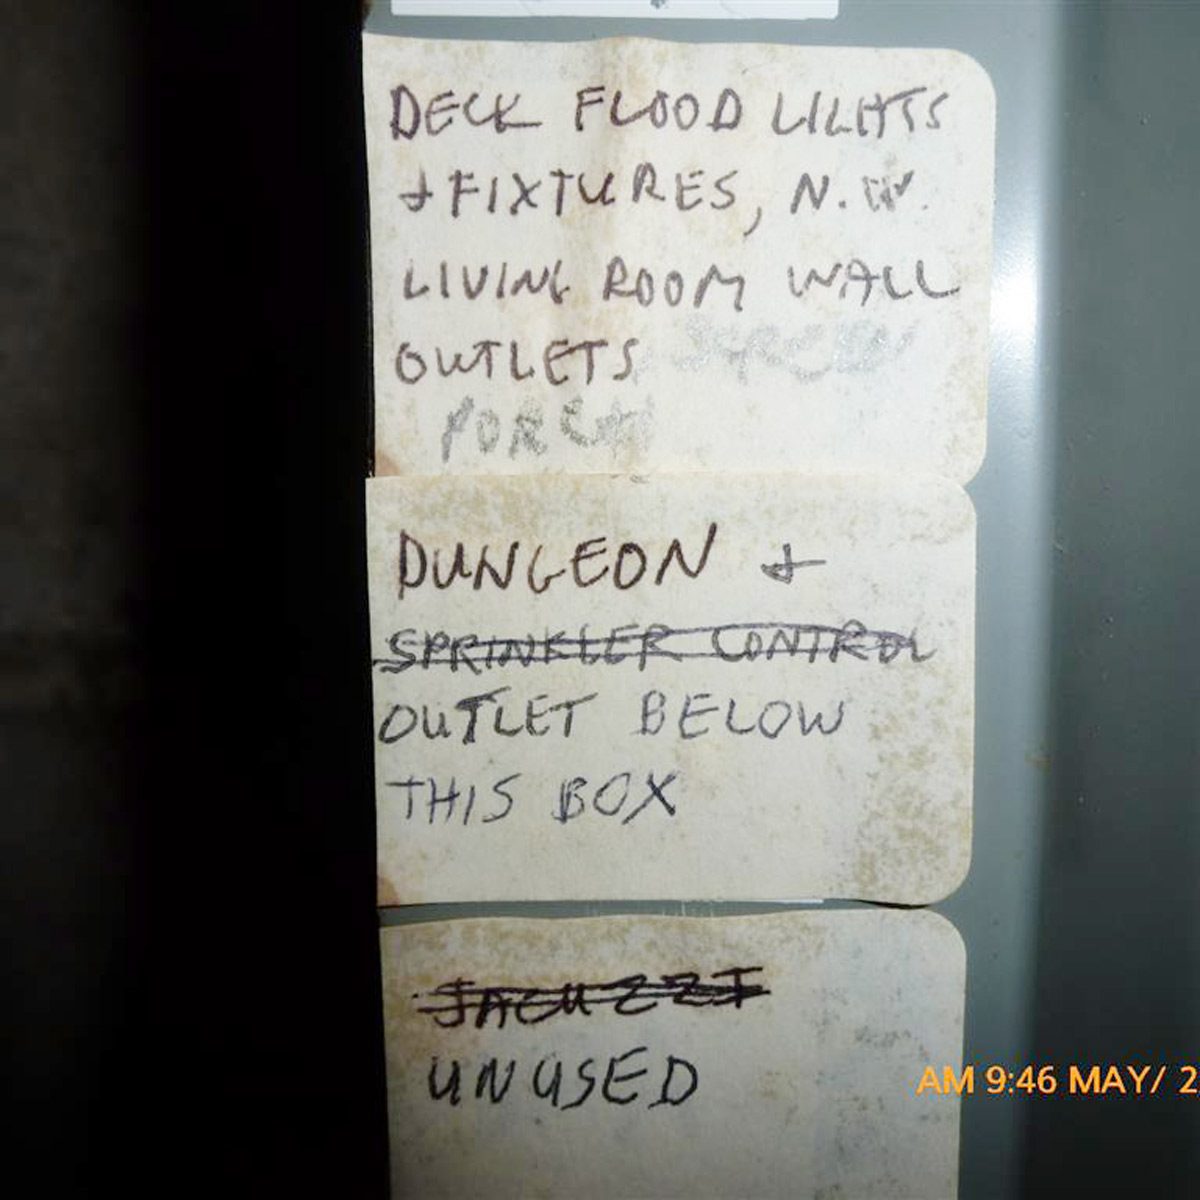 DECK FLOOD LIGHTS
+ FIXTURES, N.W.
LIVING ROOM WALL
OUTLETS, SCREEN
PORCH
DUNGEON +
SPRINKLER CONTROL
OUTLET BELOW
THIS BOX
JACUZZI
UNUSED
AM 9:46 MAY/ 2